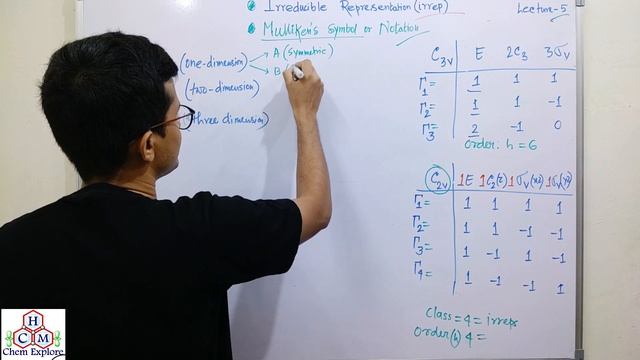 Irreducible Representation (irrep) Lecture-5
Mulliken's Symbol or Notation
(one-dimension) A (Symmetric)
B
(two-dimension)
(three dimension)
C3v E 2C3 3σv
Γ1= 1 1 1
Γ2= 1 1 -1
Γ3= 2 -1 0
Order: h = 6
C2v 1E 1C2(z) 1σv(xz) 1σv(yz)
Γ1= 1 1 1 1
Γ2= 1 1 -1 -1
Γ3= 1 -1 1 -1
Γ4= 1 -1 -1 1
Class = 4 = irreps
Order (h) 4 =
H
C M
Chem Explore